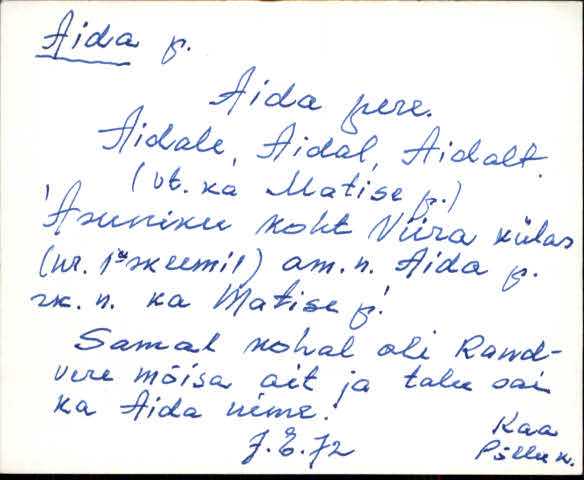 Aida p.
Aida pere.
Aidale, Aidal, Aidalt.
(vt. ka Matise p.)
'Asuniku koht Viira külas
(nr. 1 skeemil) am. n. Aida p.
rk. n. ka Matise p.'
Samal kohal oli Rand-
vere mõisa ait ja talu sai
ka Aida nime.'
J.E.72
Kaa
Põllu k.